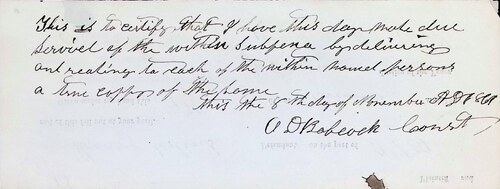 This is to certify that I have this day made due
Servel of the within Subpena by delivering
and reading to each of the within named persons
a true coppy of the same
this the 8th day of November AD
O D Babcock Const